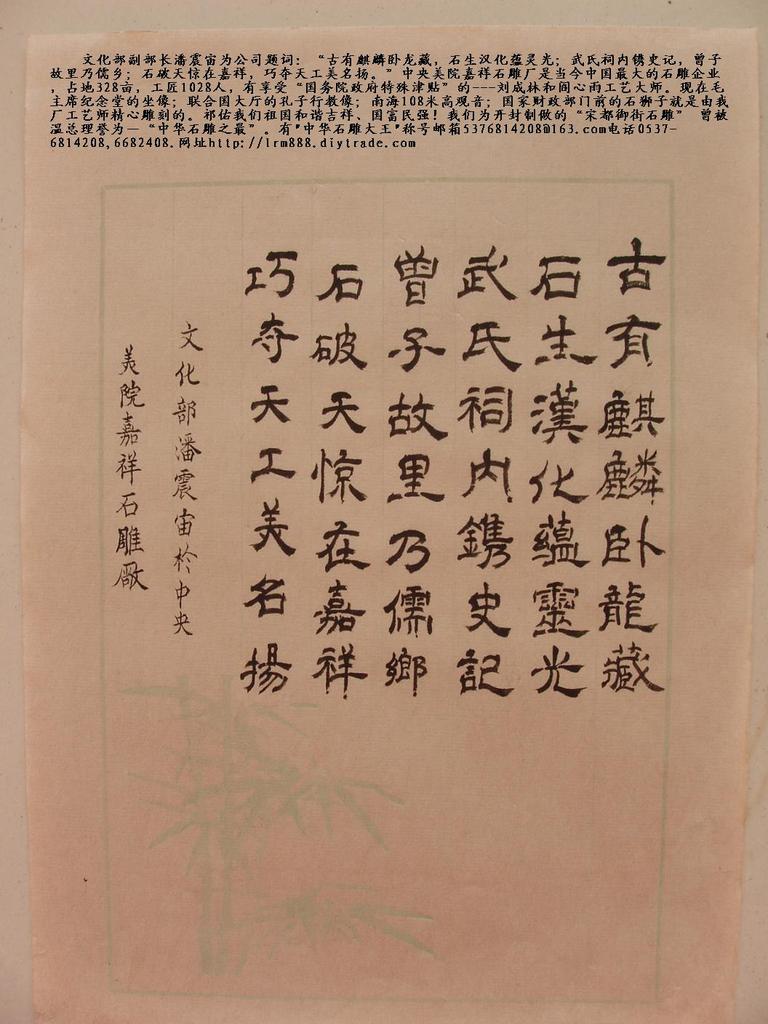 文化部副部长潘震宙为公司题词：“古有麒麟卧龙藏，石生汉化蕴灵光；武氏祠内镌史记，曾子
故里乃儒乡；石破天惊在嘉祥，巧夺天工美名扬。”中央美院嘉祥石雕厂是当今中国最大的石雕企业
，占地328亩，工匠1028人，有享受“国务院政府特殊津贴”的---刘成林和阎心雨工艺大师。现在毛
主席纪念堂的坐像；联合国大厅的孔子行教像；南海108米高观音；国家财政部门前的石狮子就是由我
厂工艺师精心雕刻的。祁佑我们祖国和谐吉祥、国富民强！我们为开封制做的“宋都御街石雕” 曾被
温总理誉为一“中华石雕之最”。有"中华石雕大王"称号邮箱5376814208@163.com电话0537-
6814208,6682408.网址http://lrm888.diytrade.com
古有麒麟卧龍藏
石生漢化蘊靈光
武氏祠内鐫史記
曾子故里乃儒鄉
石破天惊在嘉祥
巧夺天工美名揚
文化部潘震宙於中央
美院嘉祥石雕厰